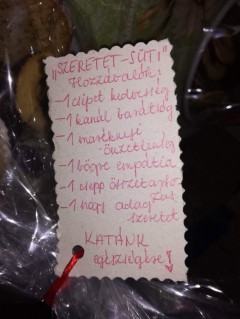 „SZERETET-SÜTI"
Hozzávalók:
-1 csipet kedvesség
-1 kanál barátság
-1 maréknyi
önzetlenség
-1 bögre empátia
-1 csepp összetartó
-1 nagy adag
szeretet
KATÁNK
egészségére!